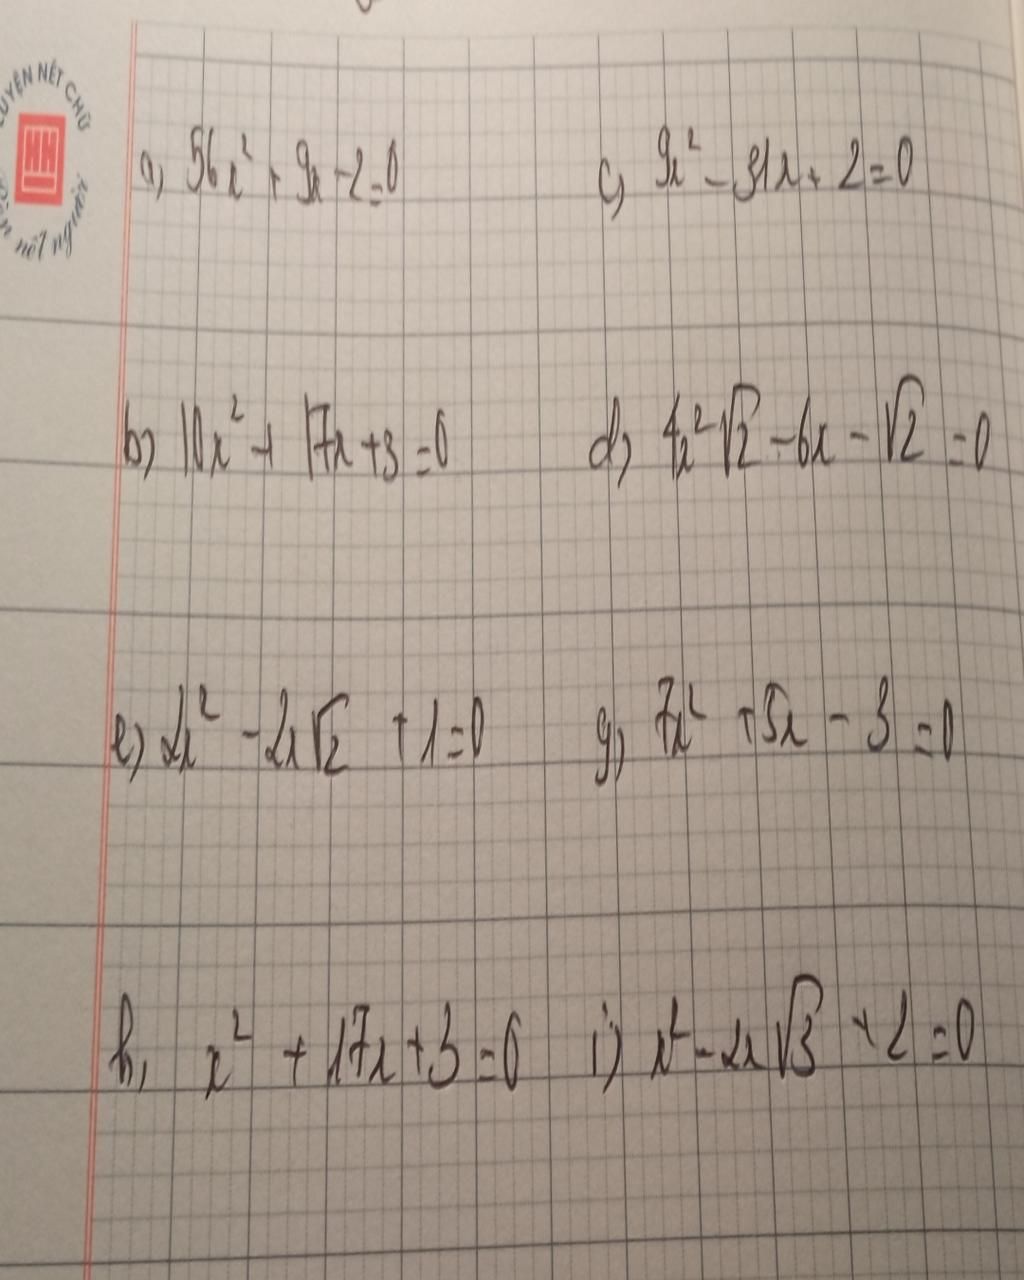 LUYỆN NÉT CHỮ
nết người
a, 56x² + 9x - 2 = 0
c, 9x² - 31x + 2 = 0
b, 10x² + 17x + 3 = 0
d, 4x²√2 - 6x - √2 = 0
e) 2x² - 2x√2 + 1 = 0
g, 7x² + 5x - 3 = 0
h, x² + 17x + 3 = 0
i) x² - 2x√3 + 2 = 0